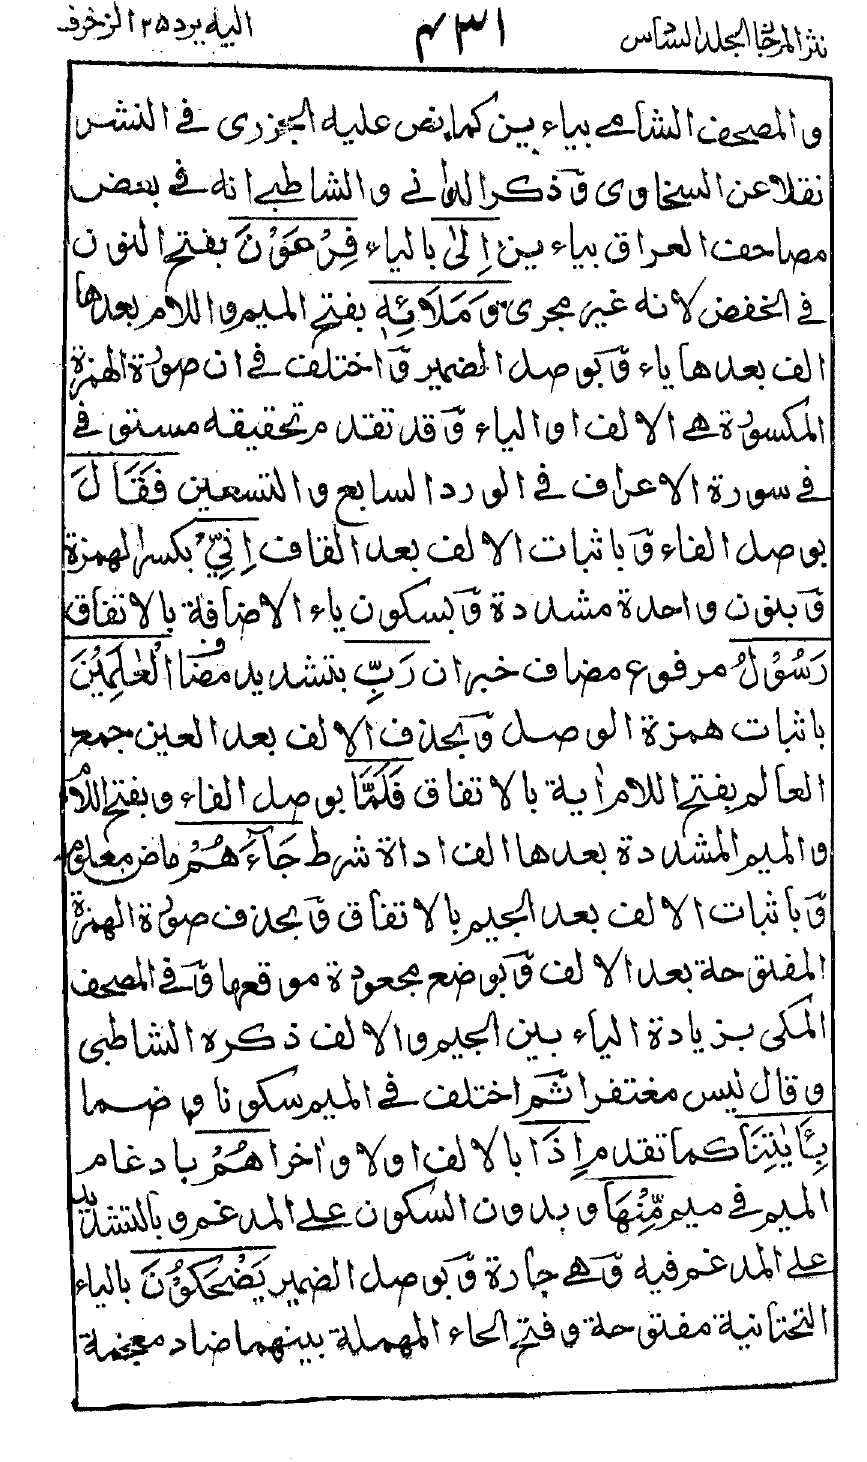 نثر المرجان المجلد السادس ۴۳۱ اليه يرد ۲۵ الزخرف
والمصحف الشامے بياءين كما نص عليه الجزرى فے النشر
نقلا عن السخاوى وٓ ذكر الدانے والشاطبے انه فے بعض
مصاحف العراق بياءين اِلىٰ بالياء فِرْعَوْنَ بفتح النون
فے الخفض لانه غير مجرى وَمَلَائِهٖ بفتح الميم واللام بعدها
الف بعدها ياء وٓ بوصل الضمير وٓ اختلف فے ان صورة الهمزة
المكسورة هے الالف او الياء وٓ قد تقدم تحقيقه مستوفے
فے سورة الاعراف فے الورد السابع والتسعين فَقَالَ
بوصل الفاء وٓ باثبات الالف بعد القاف اِنِّيْ بكسر الهمزة
وٓ بنون واحدة مشددة وٓ بسكون ياء الاضافة بالاتفاق
رَسُوْلُ مرفوع مضاف خبر ان رَبِّ بتشديد مضاف الْعٰلَمِيْنَ
باثبات همزة الوصل وٓ بحذف الالف بعد العين جمع
العالم بفتح اللام اٰية بالاتفاق فَلَمَّا بوصل الفاء وبفتح اللام
والميم المشددة بعدها الف اداة شرط جَآءَهُمْ ماض معلوم
وٓ باثبات الالف بعد الجيم بالاتفاق وٓ بحذف صورة الهمزة
المفتوحة بعد الالف وٓ بوضع مجعودة موقعها وٓ فے المصحف
المكى بزيادة الياء بين الجيم والالف ذكره الشاطبى
وقال ليس مغتفرا ثم اختلف فے الميم سكونا وضما
بِـَٔايٰتِنَا كما تقدم اِذَا بالالف اولا واٰخرا هُمْ بادغام
الميم فے ميم مِّنْهَا وبدون السكون علے المدغم وبالتشديد
علے المدغم فيه وٓ هے جارة وٓ بوصل الضمير يَضْحَكُوْنَ بالياء
التحتانية مفتوحة وفتح الحاء المهملة بينهما ضاد معجمة